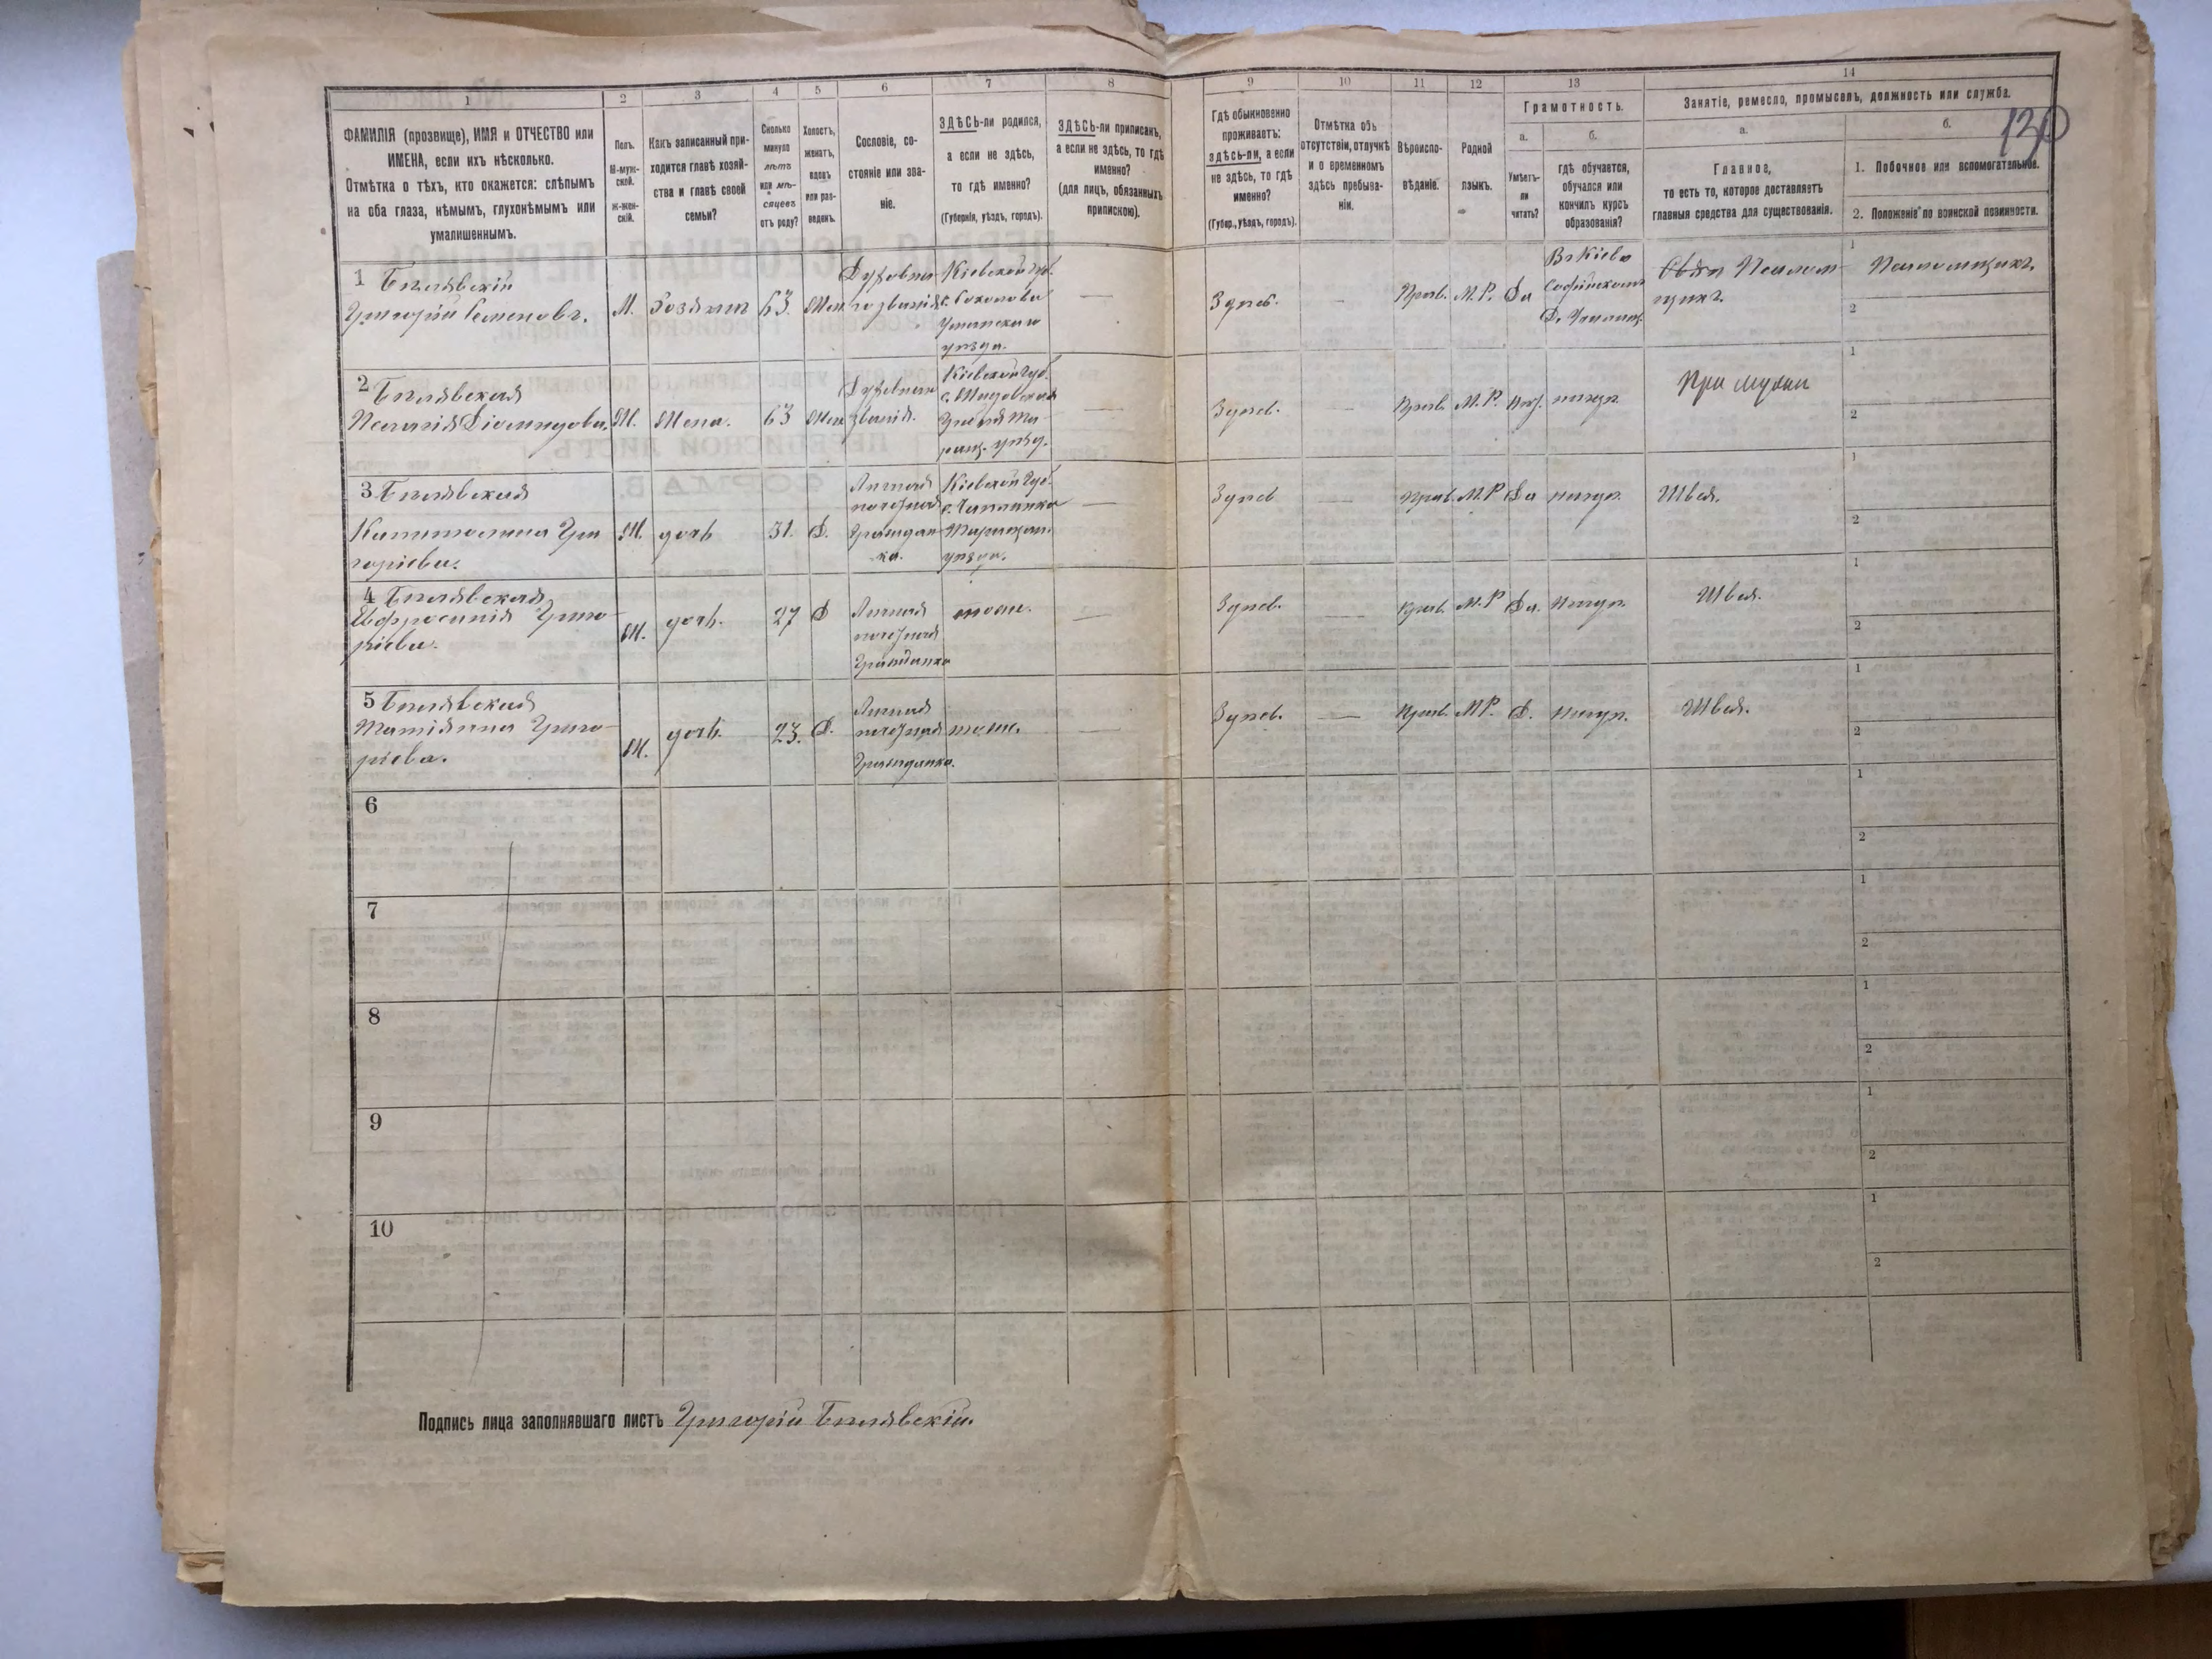 120
1
2
3
4
5
6
7
8
9
10
11
12
13
14
ФАМИЛІЯ (прозвище), ИМЯ и ОТЧЕСТВО или
ИМЕНА, если ихъ нѣсколько.
Отмѣтка о тѣхъ, кто окажется: слѣпымъ
на оба глаза, нѣмымъ, глухонѣмымъ или
умалишеннымъ.
Полъ.
М-муж-
ской.
Ж-жен-
скій.
Какъ записанный при-
ходится главѣ хозяй-
ства и главѣ своей
семьи?
Сколько
минуло
лѣтъ
или мѣ-
сяцевъ
отъ роду?
Холостъ,
женатъ,
вдовъ
или раз-
веденъ.
Сословіе, со-
стояніе или зва-
ніе.
ЗДѢСЬ-ли родился,
а если не здѣсь,
то гдѣ именно?
(Губернія, уѣздъ, городъ).
ЗДѢСЬ-ли приписанъ,
а если не здѣсь, то гдѣ
именно?
(для лицъ, обязанныхъ
припискою).
Гдѣ обыкновенно
проживаетъ:
здѣсь-ли, а если
не здѣсь, то гдѣ
именно?
(Губер., уѣздъ, городъ).
Отмѣтка объ
отсутствіи, отлучкѣ
и о временномъ
здѣсь пребыва-
ніи.
Вѣроиспо-
вѣданіе.
Родной
языкъ.
Грамотность.
а.
б.
Умѣетъ-
ли
читать?
гдѣ обучается,
обучался или
кончилъ курсъ
образованія?
Занятіе, ремесло, промыселъ, должность или служба.
а.
б.
Главное,
то есть то, которое доставляетъ
главныя средства для существованія.
1. Побочное или вспомогательное.
2. Положеніе по воинской повинности.
1 Билявскій
Григорій Семеновъ.
М.
Хозяинъ
63.
Жен.
Духовна-
го званія
Кіевской губ.
Уманскаго
уѣзда.
—
Здѣсь.
—
Прав.
М.Р.
Да
Въ Кіево
Софійскомъ
Д. Училищ.
Псалом-
щикъ.
1
Псаломщикъ.
2
2 Билявская
Пелагія Діомидова.
Ж.
Жена.
63
Духовнаго
званія.
Кіевской Губ.
—
Здѣсь.
—
Прав.
М.Р.
нигдѣ.
При мужи
1
2
3 Билявская
Капитолина Гри
горіева.
Ж.
дочь
31.
Д.
Личная
почетная
Граждан-
ка.
Кіевской Губ.
Таращан.
уѣзда.
—
Здѣсь
—
Прав.
М.Р
Да
нигдѣ.
Швея.
1
2
4 Билявская
Ефросинія Григо-
ріева.
Ж.
дочь.
27
Д
Личная
почетная
Гражданка
тоже.
—
Здѣсь.
—
Прав.
М.Р
Да.
Нигдѣ.
Швея.
1
2
5 Билявская
Татіяна Григо-
ріева.
Ж.
дочь.
23.
Д.
Личная
почетная
Гражданка.
тоже.
—
Здѣсь.
—
Прав.
МР.
Д.
Нигдѣ.
Швея.
1
2
6
1
2
7
1
2
8
1
2
9
1
2
10
1
2
Подпись лица заполнявшаго листъ Григорій Билявскій.